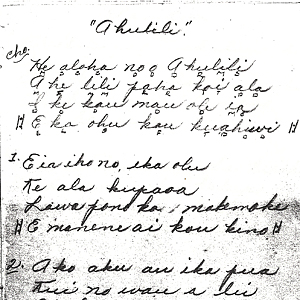 "Ahulili"
Cho: He aloha no o Ahulili
A he lili paha koi ala
I ke kau mau olu ia
E ka ohu kau kuahiwi
1. Eia iho no ika olu
Ke ala kupaoa
Lawa pono ka makemake
E manene ai kou kino
2. Ako aku au ika pua
Kui no wau a lei